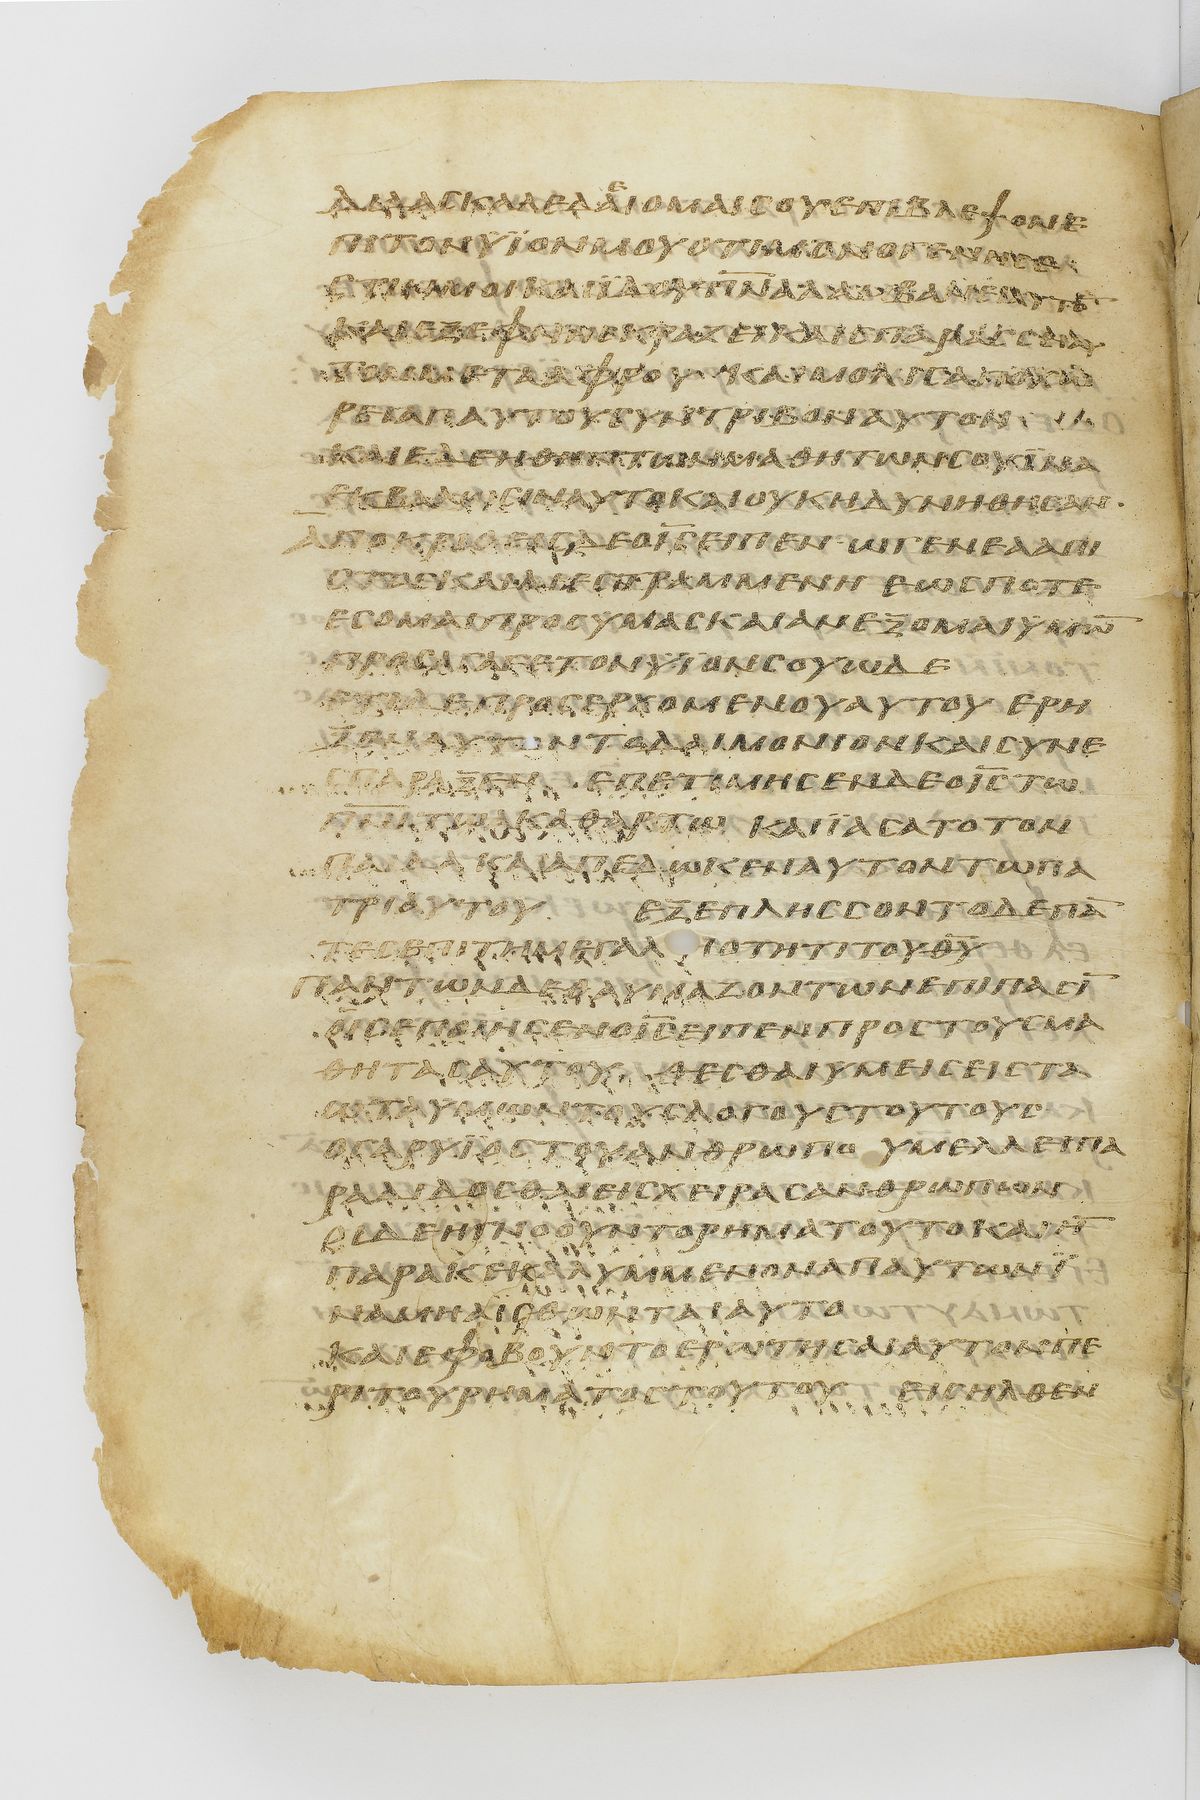 ΔΙΔΑΣΚΑΛΕΔΕΟΜΑΙΣΟΥΕΠΙΒΛΕΨΟΝΕ
ΠΙΤΟΝΥΪΟΝΜΟΥΟΤΙΜ
ΠΝΑΛΑΜΒΑΝΕΙΑΥΤΟ
ΚΑΙΕΞΕΦΝΗΣΚΡΑΖΕΙΚΑΙ
ΑΦΡΟΥ ΚΑΙΜΟΛΙΣΑΠΟΧΩ
ΡΕΙΑΠΑΥΤΟΥΣΥΝΤΡΙΒΟΝΑΥΤΟΝ ΚΑΙ
ΕΔΕΗΘΗΝΤΩΝΜΑΘΗΤΩΝΣΟΥΪΝΑ
ΕΚΒΑΛΩΣΙΝΑΥΤΟΚΑΙΟΥΚΗΔΥΝΗΘΗΣΑΝ·
ΑΠΟΚΡΙΘΕΙΣΔΕΟΙΣΕΙΠΕΝ ΩΓΕΝΕΑΑΠΙ
ΣΤΟΣΚΑΙΔΙΕΣΤΡΑΜΜΕΝΗ ΕΩΣΠΟΤΕ
ΕΣΟΜΑΙΠΡΟΣΥΜΑΣΚΑΙΑΝΕΞΟΜΑΙΥΜΩ
ΠΡΟΣΑΓΑΓΕΤΟΝΥΪΟΝΣΟΥΩΔΕ
ΕΤΙΔΕΠΡΟΣΕΡΧΟΜΕΝΟΥΑΥΤΟΥ ΕΡΗ
ΞΕΝΑΥΤΟΝΤΟΔΑΙΜΟΝΙΟΝΚΑΙΣΥΝΕ
ΣΠΑΡΑΞΕΝ ΕΠΕΤΙΜΗΣΕΝΔΕΟΙΣΤΩ
ΠΝΙΤΩΑΚΑΘΑΡΤΩ ΚΑΙΪΑΣΑΤΟΤΟΝ
ΠΑΙΔΑΚΑΙΑΠΕΔΩΚΕΝΑΥΤΟΝΤΩΠΑ
ΤΡΙΑΥΤΟΥ ΕΞΕΠΛΗΣΣΟΝΤΟΔΕΠΑ
ΤΕΣΕΠΙΤΗΜΕΓΑΛΙΟΤΗΤΙΤΟΥΘΥ
ΠΑΝΤΩΝΔΕΘΑΥΜΑΖΟΝΤΩΝΕΠΙΠΑΣΙ
ΟΙΣΕΠΟΙΗΣΕΝΟΙΣΕΙΠΕΝΠΡΟΣΤΟΥΣΜΑ
ΘΗΤΑΣΑΥΤΟΥ ΘΕΣΘΑΙΥΜΕΙΣΕΙΣΤΑ
ΩΤΑΥΜΩΝΤΟΥΣΛΟΓΟΥΣΤΟΥΤΟΥΣ
ΟΓΑΡΥΪΟΣΤΟΥΑΝΘΡΩΠΟΥΜΕΛΛΕΙΠΑ
ΡΑΔΙΔΟΣΘΑΙΕΙΣΧΕΙΡΑΣΑΝΘΡΩΠΩΝ
ΟΙΔΕΗΓΝΟΟΥΝΤΟΡΗΜΑΤΟΥΤΟΚΑΙΗ
ΠΑΡΑΚΕΚΑΛΥΜΜΕΝΟΝΑΠΑΥΤΩΝΪ
ΝΑΜΗΑΙΣΘΩΝΤΑΙΑΥΤΟ
ΚΑΙΕΦΟΒΟΥΝΤΟΕΡΩΤΗΣΑΙΑΥΤΟΝΠΕ
ΡΙΤΟΥΡΗΜΑΤΟΣΤΟΥΤΟΥ ΕΙΣΗΛΘΕΝ